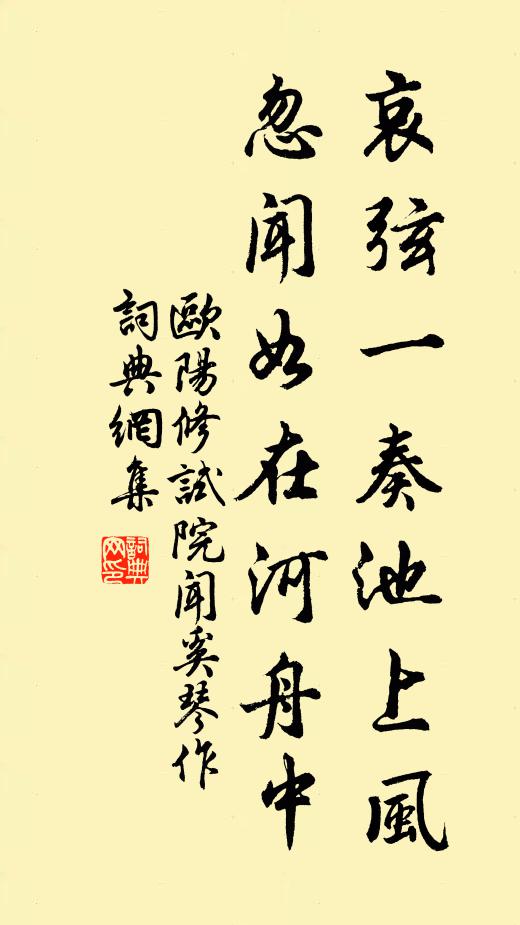 哀弦一奏池上風
忽聞如在河舟中
歐陽修試院聞奚琴作
詞典網集
詞典網印